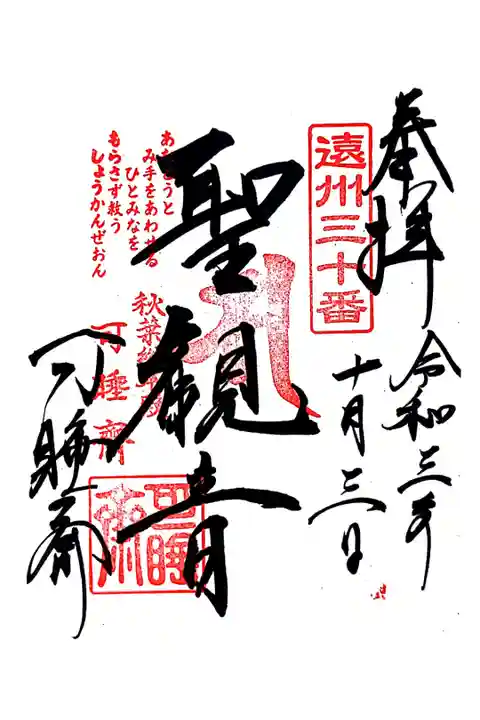 奉拝
令和三年
十月三日
遠州三十番
聖観音
あ
み手をあわせる
ひとみなを
もらさず救う
しょうかんぜおん
秋葉総本殿
可睡齋
可睡斎
可睡齋